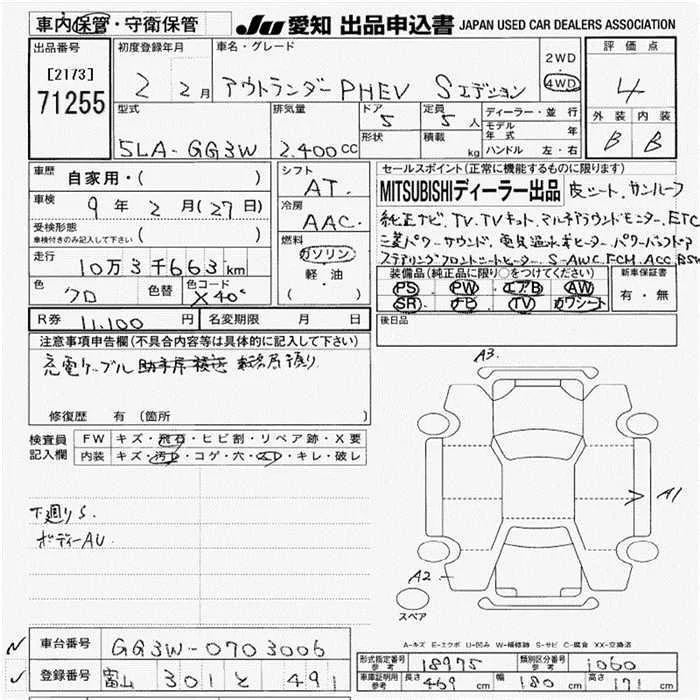 車内保管・守衛保管
JU 愛知 出品申込書 JAPAN USED CAR DEALERS ASSOCIATION
出品番号
[2173]
71255
初度登録年月
2 2月
車名・グレード
アウトランダーPHEV Sエデション
2WD
4WD
評価点
4
外装 内装
B B
型式
5LA-GG3W
排気量
2.400cc
ドア
5
形状
定員
5人
積載
kg
ディーラー・並行
モデル年式 年
ハンドル 左・右
車歴 自家用・( )
車検 9年2月(27日)
受検形態
車検付きのみ記入して下さい ( )
走行
10万3千663km
色 クロ 色替 色コード X40
シフト
AT.
冷房
AAC.
燃料
ガソリン
軽・油
( )
セールスポイント(正常に機能するものに限ります)
MITSUBISHIディーラー出品 皮シート.サンルーフ
純正ナビ.TV.TVキット.マルチアラウンドモニター.ETC
三菱パワーサウンド.電気温水式ヒーター.パワーバックドア
ステアリングフロントシートヒーター.S-AWC.FCM.ACC.BSW
装備品(純正品に限り○をつけてください)
PS PW エアB AW
SR ナビ TV カワシート
新車保証書
有・無
R券 11,100 円 名変期限 月 日
後日品
注意事項申告欄(不具合内容等は具体的に記入して下さい)
充電ケーブル
修復歴 有(箇所 )
検査員記入欄
FW キズ・飛石・ヒビ割・リペア跡・X要
内装 キズ・汚レ・コゲ・穴・スレ・キレ・破レ
下廻りS.
ボディーAU.
A3.
A1
A2
スペア
A-キズ E-エクボ U-凹み W-補修跡 S-サビ C-腐食 XX-交換済
車台番号 GG3W-0703006
登録番号 富山 301 と 491
形式指定番号 参考 18975 類別区分番号 参考 1060
車庫証明用 参考 長さ 469cm 幅 180cm 高さ 171cm